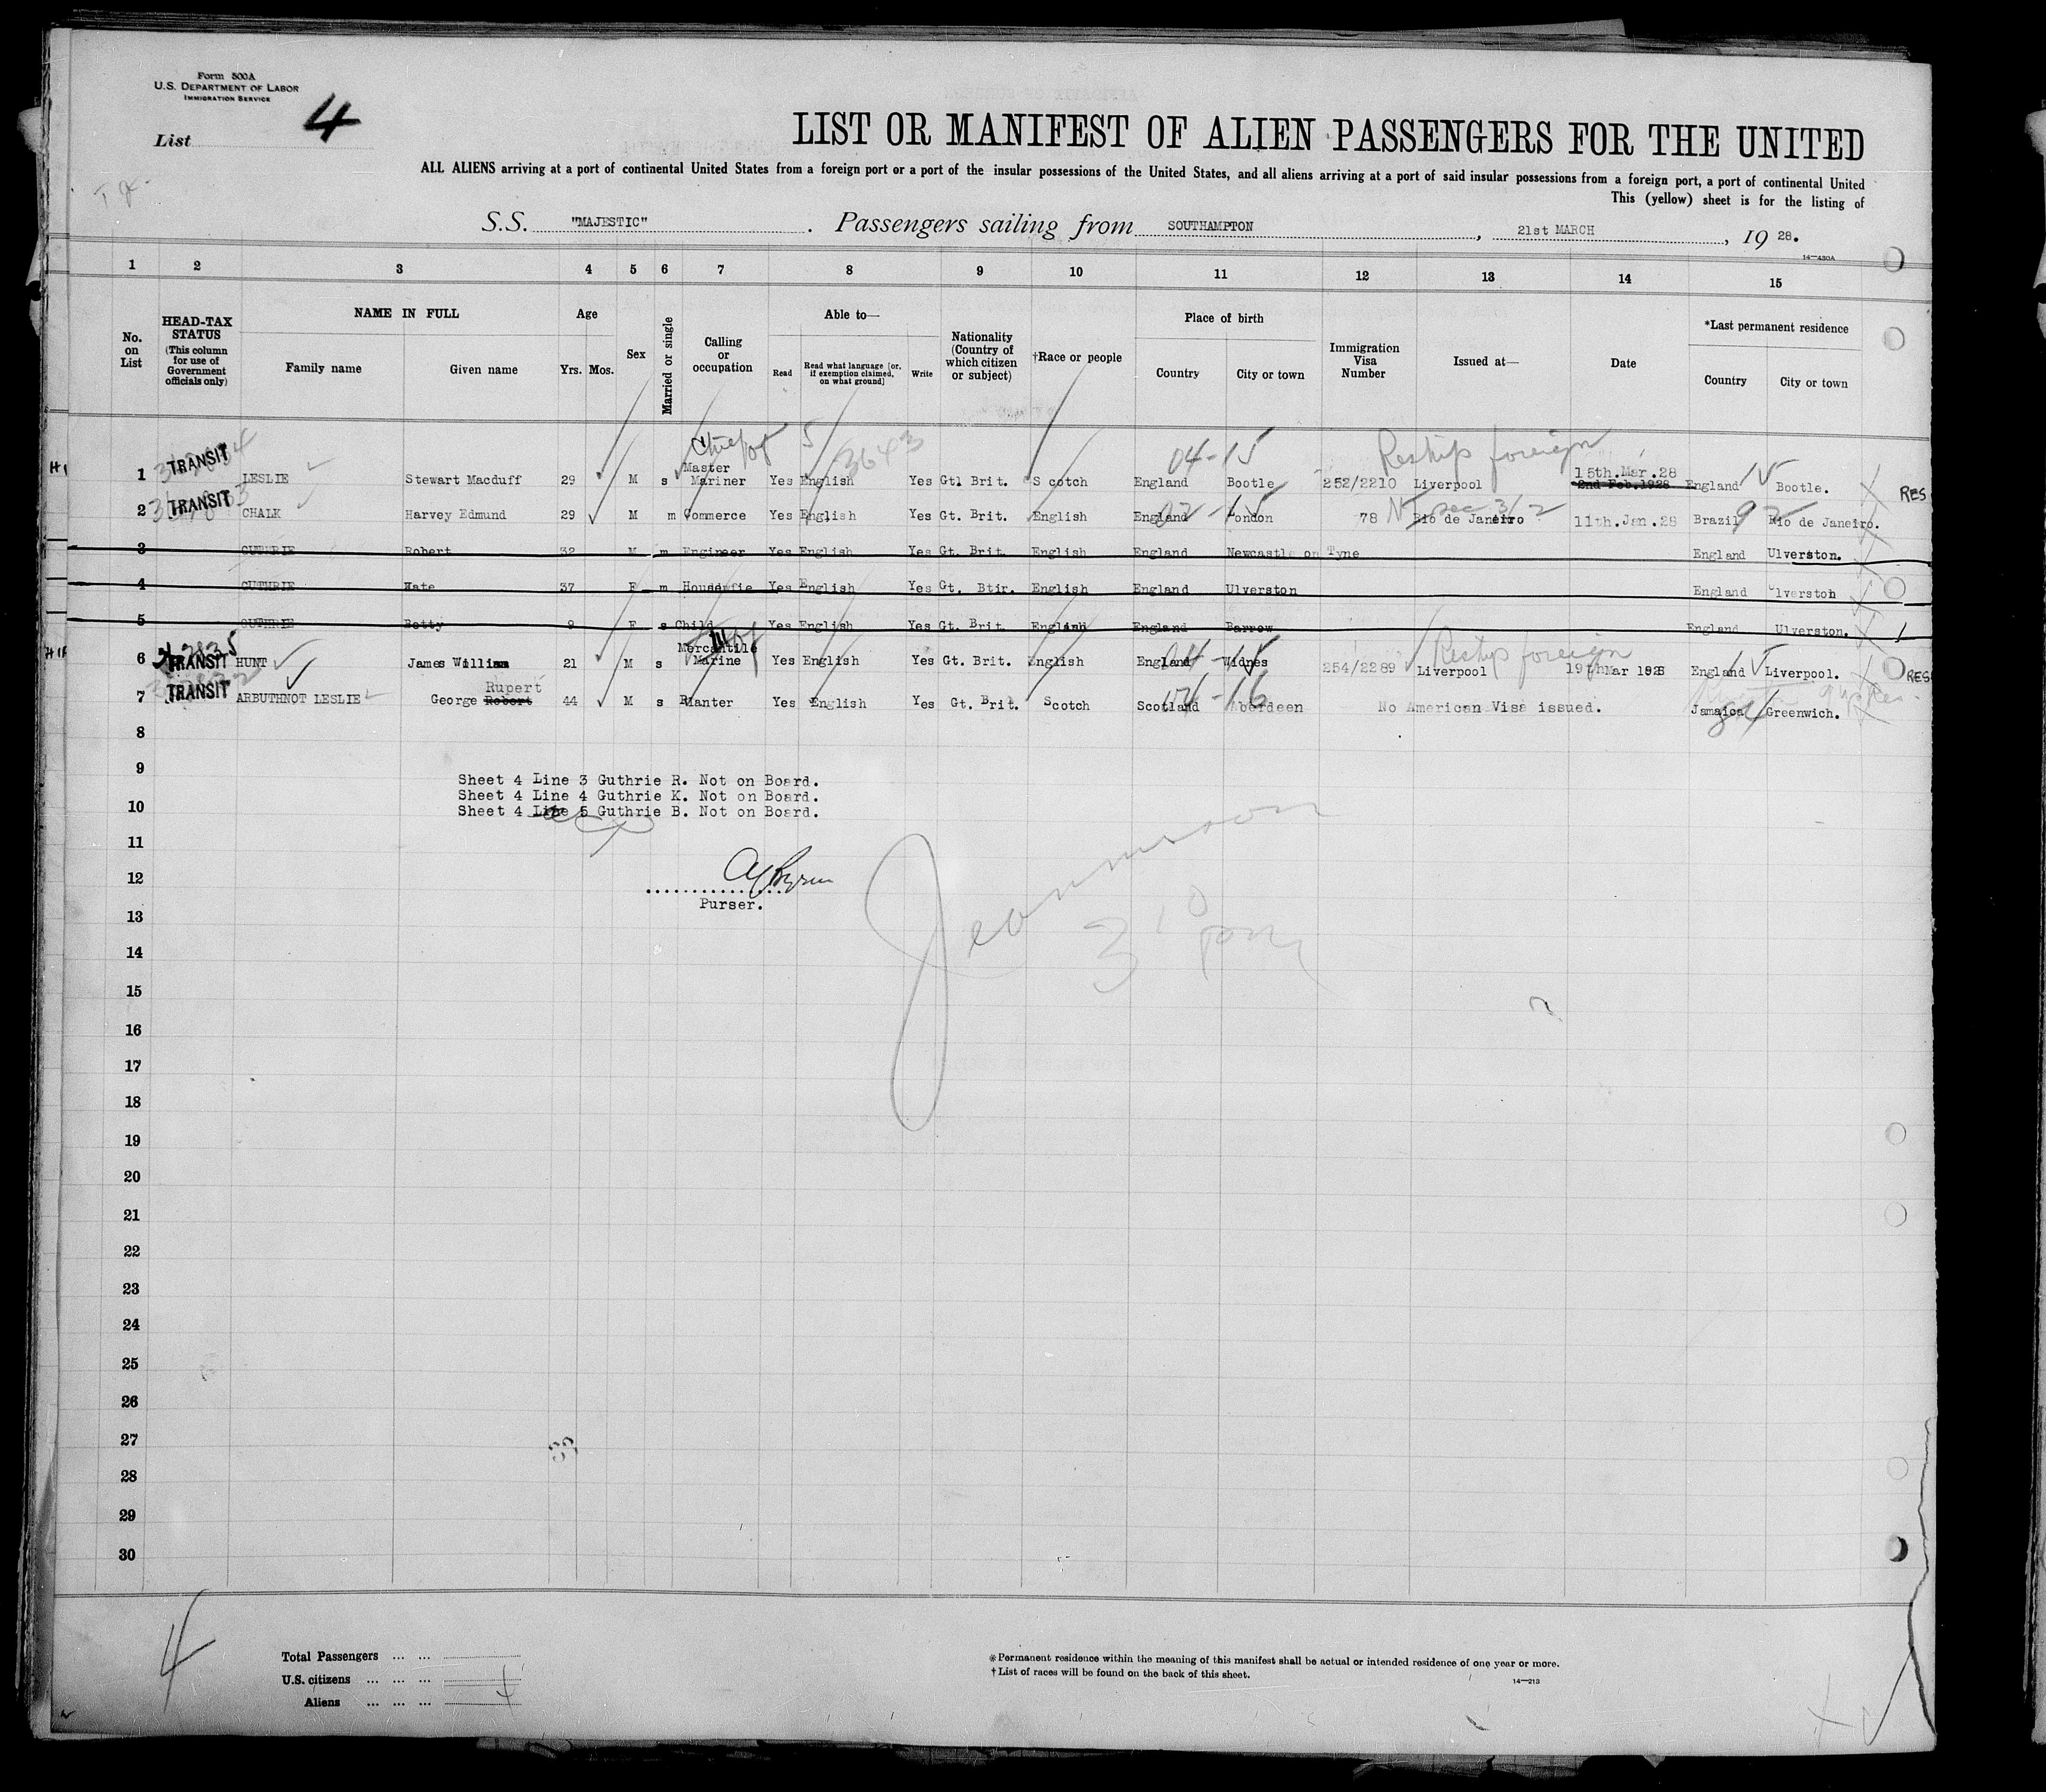 Form 500A
U.S. DEPARTMENT OF LABOR
IMMIGRATION SERVICE
List 4
LIST OR MANIFEST OF ALIEN PASSENGERS FOR THE UNITED
ALL ALIENS arriving at a port of continental United States from a foreign port or a port of the insular possessions of the United States, and all aliens arriving at a port of said insular possessions from a foreign port, a port of continental United
This (yellow) sheet is for the listing of
S.S. "MAJESTIC" . Passengers sailing from SOUTHAMPTON , 21st MARCH , 19 28.
14—430A
1 2 3 4 5 6 7 8 9 10 11 12 13 14 15
No. on List
HEAD-TAX STATUS (This column for use of Government officials only)
NAME IN FULL
Family name Given name
Age
Yrs. Mos.
Sex
Married or single
Calling or occupation
Able to—
Read Read what language [or, if exemption claimed, on what ground] Write
Nationality (Country of which citizen or subject)
†Race or people
Place of birth
Country City or town
Immigration Visa Number
Issued at—
Date
*Last permanent residence
Country City or town
5 3643 04-15 Reship foreign
1 TRANSIT LESLIE Stewart Macduff 29 M s Master Mariner Yes English Yes Gtl Brit. S cotch England Bootle 252/2210 Liverpool 15th.Mar.28 2nd Feb.1928 England Bootle. RES
2 TRANSIT CHALK Harvey Edmund 29 M m Commerce Yes English Yes Gt. Brit. English England London 78 Rio de Janeiro 11th.Jan.28 Brazil Rio de Janeiro.
3 GUTHRIE Robert 32 M m Engineer Yes English Yes Gt. Brit. English England Newcastle on Tyne England Ulverston.
4 GUTHRIE Kate 37 F m Housewife Yes English Yes Gt. Btir. English England Ulverston England Ulverston
5 GUTHRIE Betty 9 F s Child Yes English Yes Gt. Brit. English England Barrow England Ulverston.
6 TRANSIT HUNT James William 21 M s Mercantile Marine Yes English Yes Gt. Brit. English England Widnes 254/2289 Liverpool Reship foreign 19th Mar 1928 England Liverpool. RES
7 TRANSIT ARBUTHNOT LESLIE George Rupert Robert 44 M s Planter Yes English Yes Gt. Brit. Scotch Scotland Aberdeen No American Visa issued. Jamaica Greenwich.
8
9
Sheet 4 Line 3 Guthrie R. Not on Board.
Sheet 4 Line 4 Guthrie K. Not on Board.
10 Sheet 4 Line 5 Guthrie B. Not on Board.
11
12
Purser.
13
14
15
16
17
18
19
20
21
22
23
24
25
26
27
28
29
30
4
Total Passengers ... ...
U.S. citizens ... ... ...
Aliens ... ... ...
*Permanent residence within the meaning of this manifest shall be actual or intended residence of one year or more.
†List of races will be found on the back of this sheet.
14—213